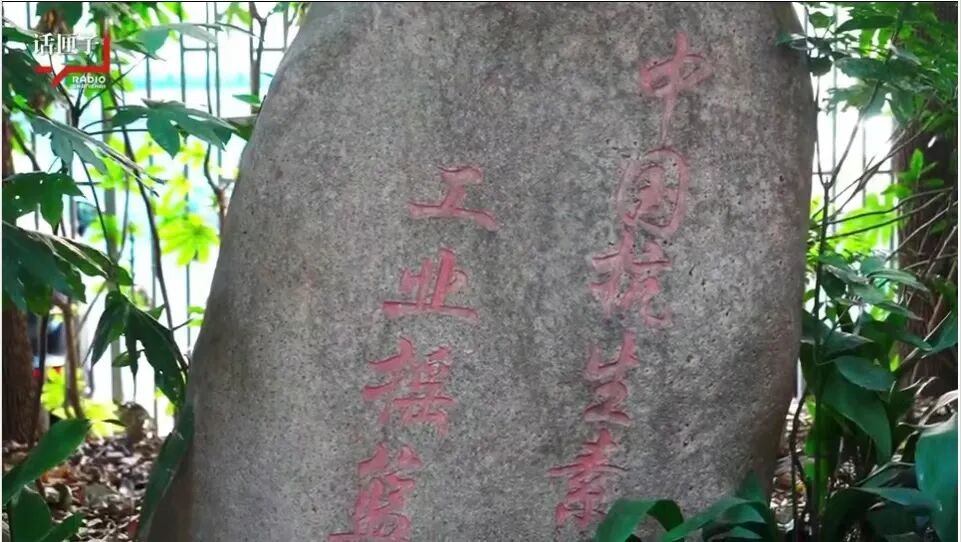 话匣子
RADIO
SHANGHAI
中国抗生素
工业摇篮